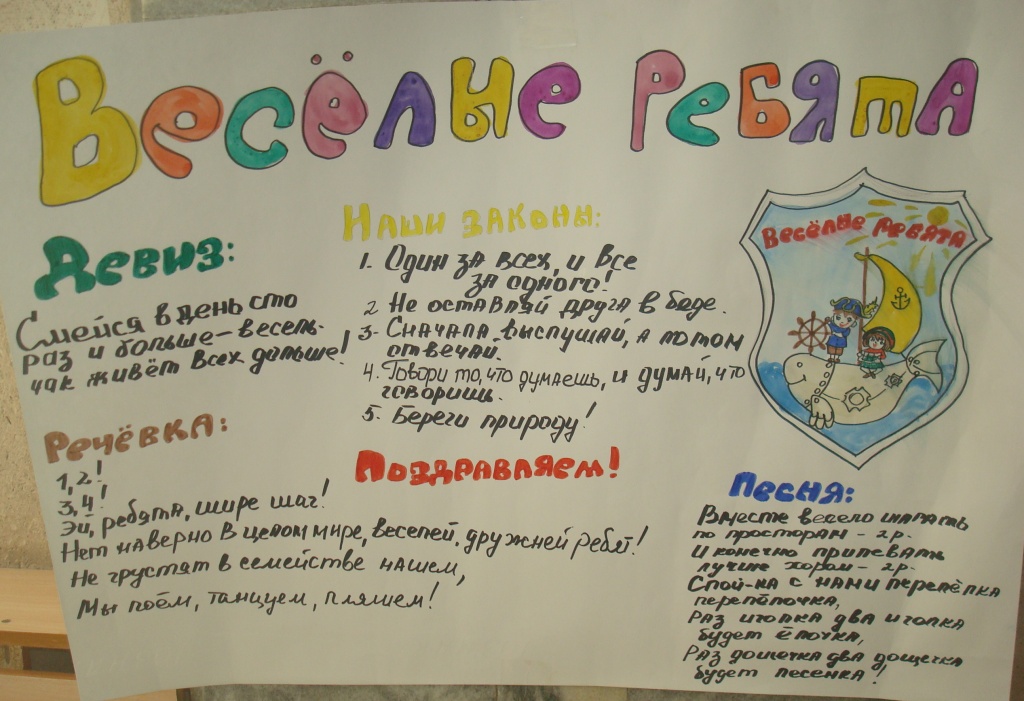 Весёлые ребята
Девиз:
Смейся в день сто
раз и больше – весель-
чак живёт всех дольше!
Речёвка:
1, 2!
3, 4!
Эй, ребята, шире шаг!
Нет наверно в целом мире, веселей, дружней ребят!
Не грустят в семействе нашем,
Мы поём, танцуем, пляшем!
Наши законы:
1. Один за всех, и все
за одного!
2 Не оставляй друга в беде.
3. Сначала выслушай, а потом
отвечай.
4. Говори то, что думаешь, и думай, что
говоришь.
5. Береги природу!
Поздравляем!
Весёлые ребята
Песня:
Вместе весело шагать
по просторам – 2р.
И конечно припевать
лучше хором – 2р.
Спой-ка с нами перепёлка
перепёлочка,
Раз иголка два иголка
будет ёлочка,
Раз дощечка два дощечка
будет песенка!